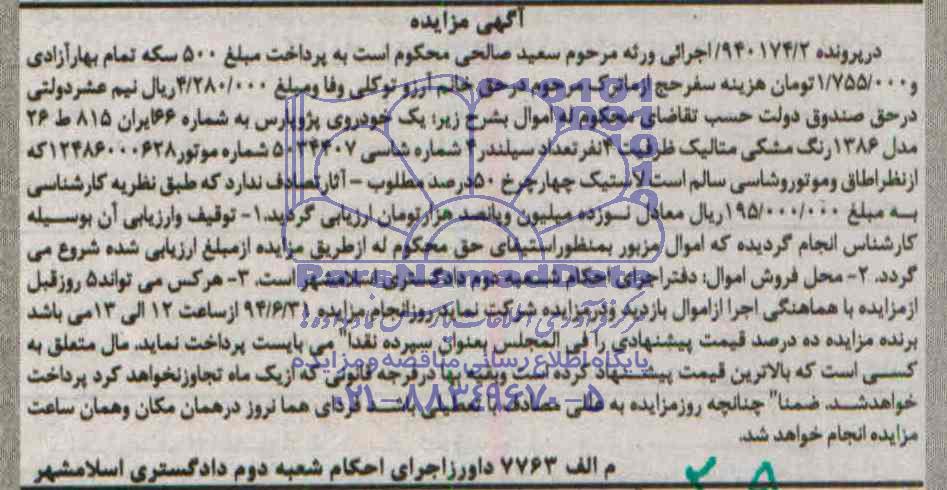 آگهی مزایده
درپرونده ۹۴۰۱۷۴/۲/اجرائی ورثه مرحوم سعید صالحی محکوم است به پرداخت مبلغ ۵۰۰ سکه تمام بهارآزادی
و۱/۷۵۵/۰۰۰تومان هزینه سفرحج ازماترک مرحوم درحق خانم آرزو توکلی وفا ومبلغ ۴/۲۸۰/۰۰۰ریال نیم عشردولتی
درحق صندوق دولت حسب تقاضای محکوم له اموال بشرح زیر: یک خودروی پژوپارس به شماره ۶۶ایران ۸۱۵ ط ۲۶
مدل ۱۳۸۶رنگ مشکی متالیک ظرفیت ۴نفرتعداد سیلندر۴ شماره شاسی شماره موتور۱۲۴۸۶۰۰۰۶۲۸که
ازنظراطاق وموتوروشاسی سالم است لاستیک چهارچرخ ۵۰درصد مطلوب – آثارتصادف ندارد که طبق نظریه کارشناسی
به مبلغ ۱۹۵/۰۰۰/۰۰۰ریال معادل نوزده میلیون وپانصد هزارتومان ارزیابی گردید.۱- توقیف وارزیابی آن بوسیله
کارشناس انجام گردیده که اموال مزبور بمنظوراستیفای حق محکوم له ازطریق مزایده ازمبلغ ارزیابی شده شروع می
گردد. ۲- محل فروش اموال: دفتراجرای احکام شعبه دوم دادگستری اسلامشهر است. ۳- هرکس می تواند۵ روزقبل
ازمزایده با هماهنگی اجرا ازاموال بازدید ودرمزایده شرکت نماید.روزانجام مزایده ۹۴/۶/۳۱ ازساعت ۱۲ الی ۱۳می باشد
برنده مزایده ده درصد قیمت پیشنهادی را فی المجلس بعنوان سپرده نقدا" می بایست پرداخت نماید.مال متعلق به
کسی است که بالاترین قیمت پیشنهاد کرده درموعد قانونی که ازیک ماه تجاوزنخواهد کرد پرداخت
خواهدشد. ضمنا" چنانچه روزمزایده به مصادف با تعطیلی باشد فردای همانروز درهمان مکان وهمان ساعت
مزایده انجام خواهد شد.
م الف ۷۷۶۳ داورزاجرای احکام شعبه دوم دادگستری اسلامشهر
ParsNamadData
پایگاه اطلاع رسانی مناقصه و مزایده
۰۲۱-۸۸۳۴۹۶۷۰-۵